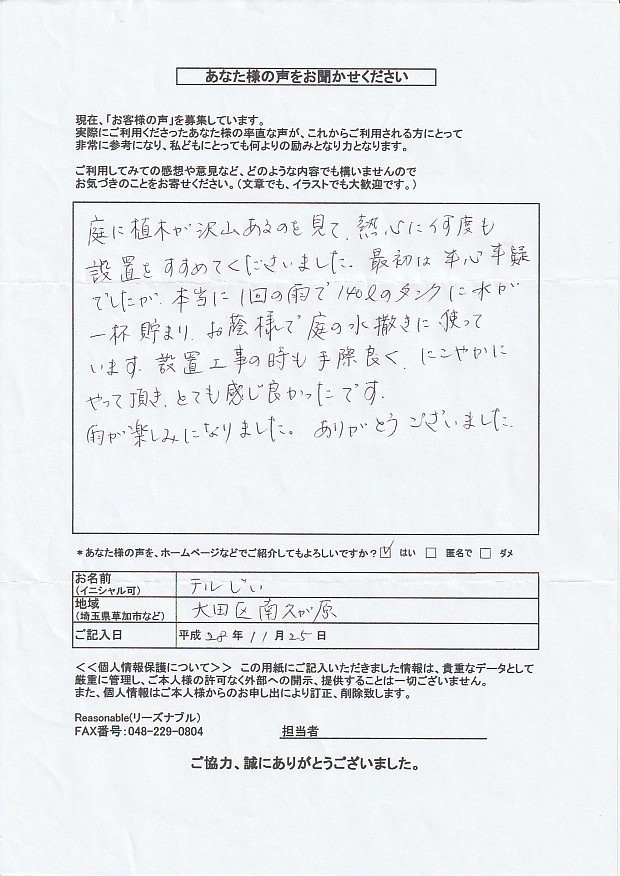 あなた様の声をお聞かせください
現在、「お客様の声」を募集しています。
実際にご利用くださったあなた様の率直な声が、これからご利用される方にとって
非常に参考になり、私どもにとっても何よりの励みとなり力となります。
ご利用してみての感想や意見など、どのような内容でも構いませんので
お気づきのことをお寄せください。（文章でも、イラストでも大歓迎です。）
庭に植木が沢山あるのを見て、熱心に何度も
設置をすすめてくださいました。最初は半心半疑
でしたが、本当に1回の雨で140ℓのタンクに水が
一杯貯まり、お蔭様で庭の水撒きに使って
います。設置工事の時も手際良く、にこやかに
やって頂き、とても感じ良かったです。
雨が楽しみになりました。ありがとうございました。
＊あなた様の声を、ホームページなどでご紹介してもよろしいですか？ ☑ はい □ 匿名で □ ダメ
お名前
（イニシャル可） テルじい
地域
（埼玉県草加市など） 大田区南久が原
ご記入日 平成28年11月25日
＜＜個人情報保護について＞＞ この用紙にご記入いただきました情報は、貴重なデータとして
厳重に管理し、ご本人様の許可なく外部への開示、提供することは一切ございません。
また、個人情報はご本人様からのお申し出により訂正、削除致します。
Reasonable(リーズナブル)
FAX番号：048-229-0804 担当者
ご協力、誠にありがとうございました。